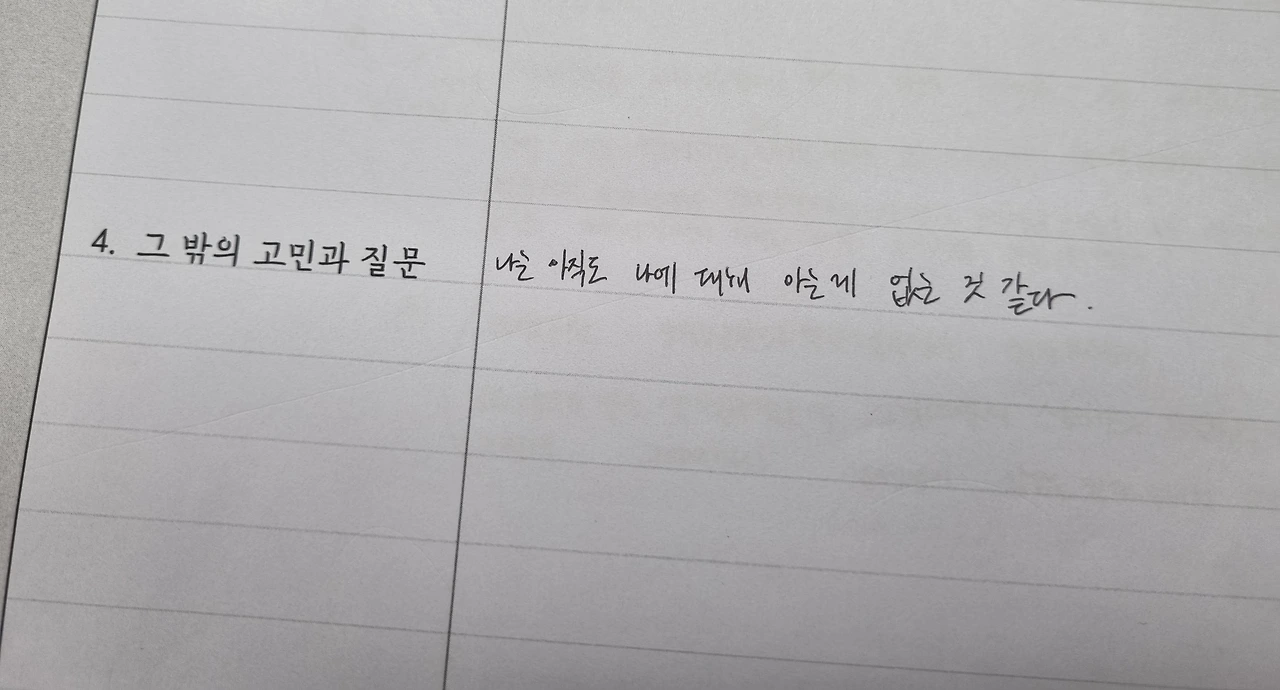 4. 그 밖의 고민과 질문 나는 아직도 나에 대해 아는 게 없는 것 같다.